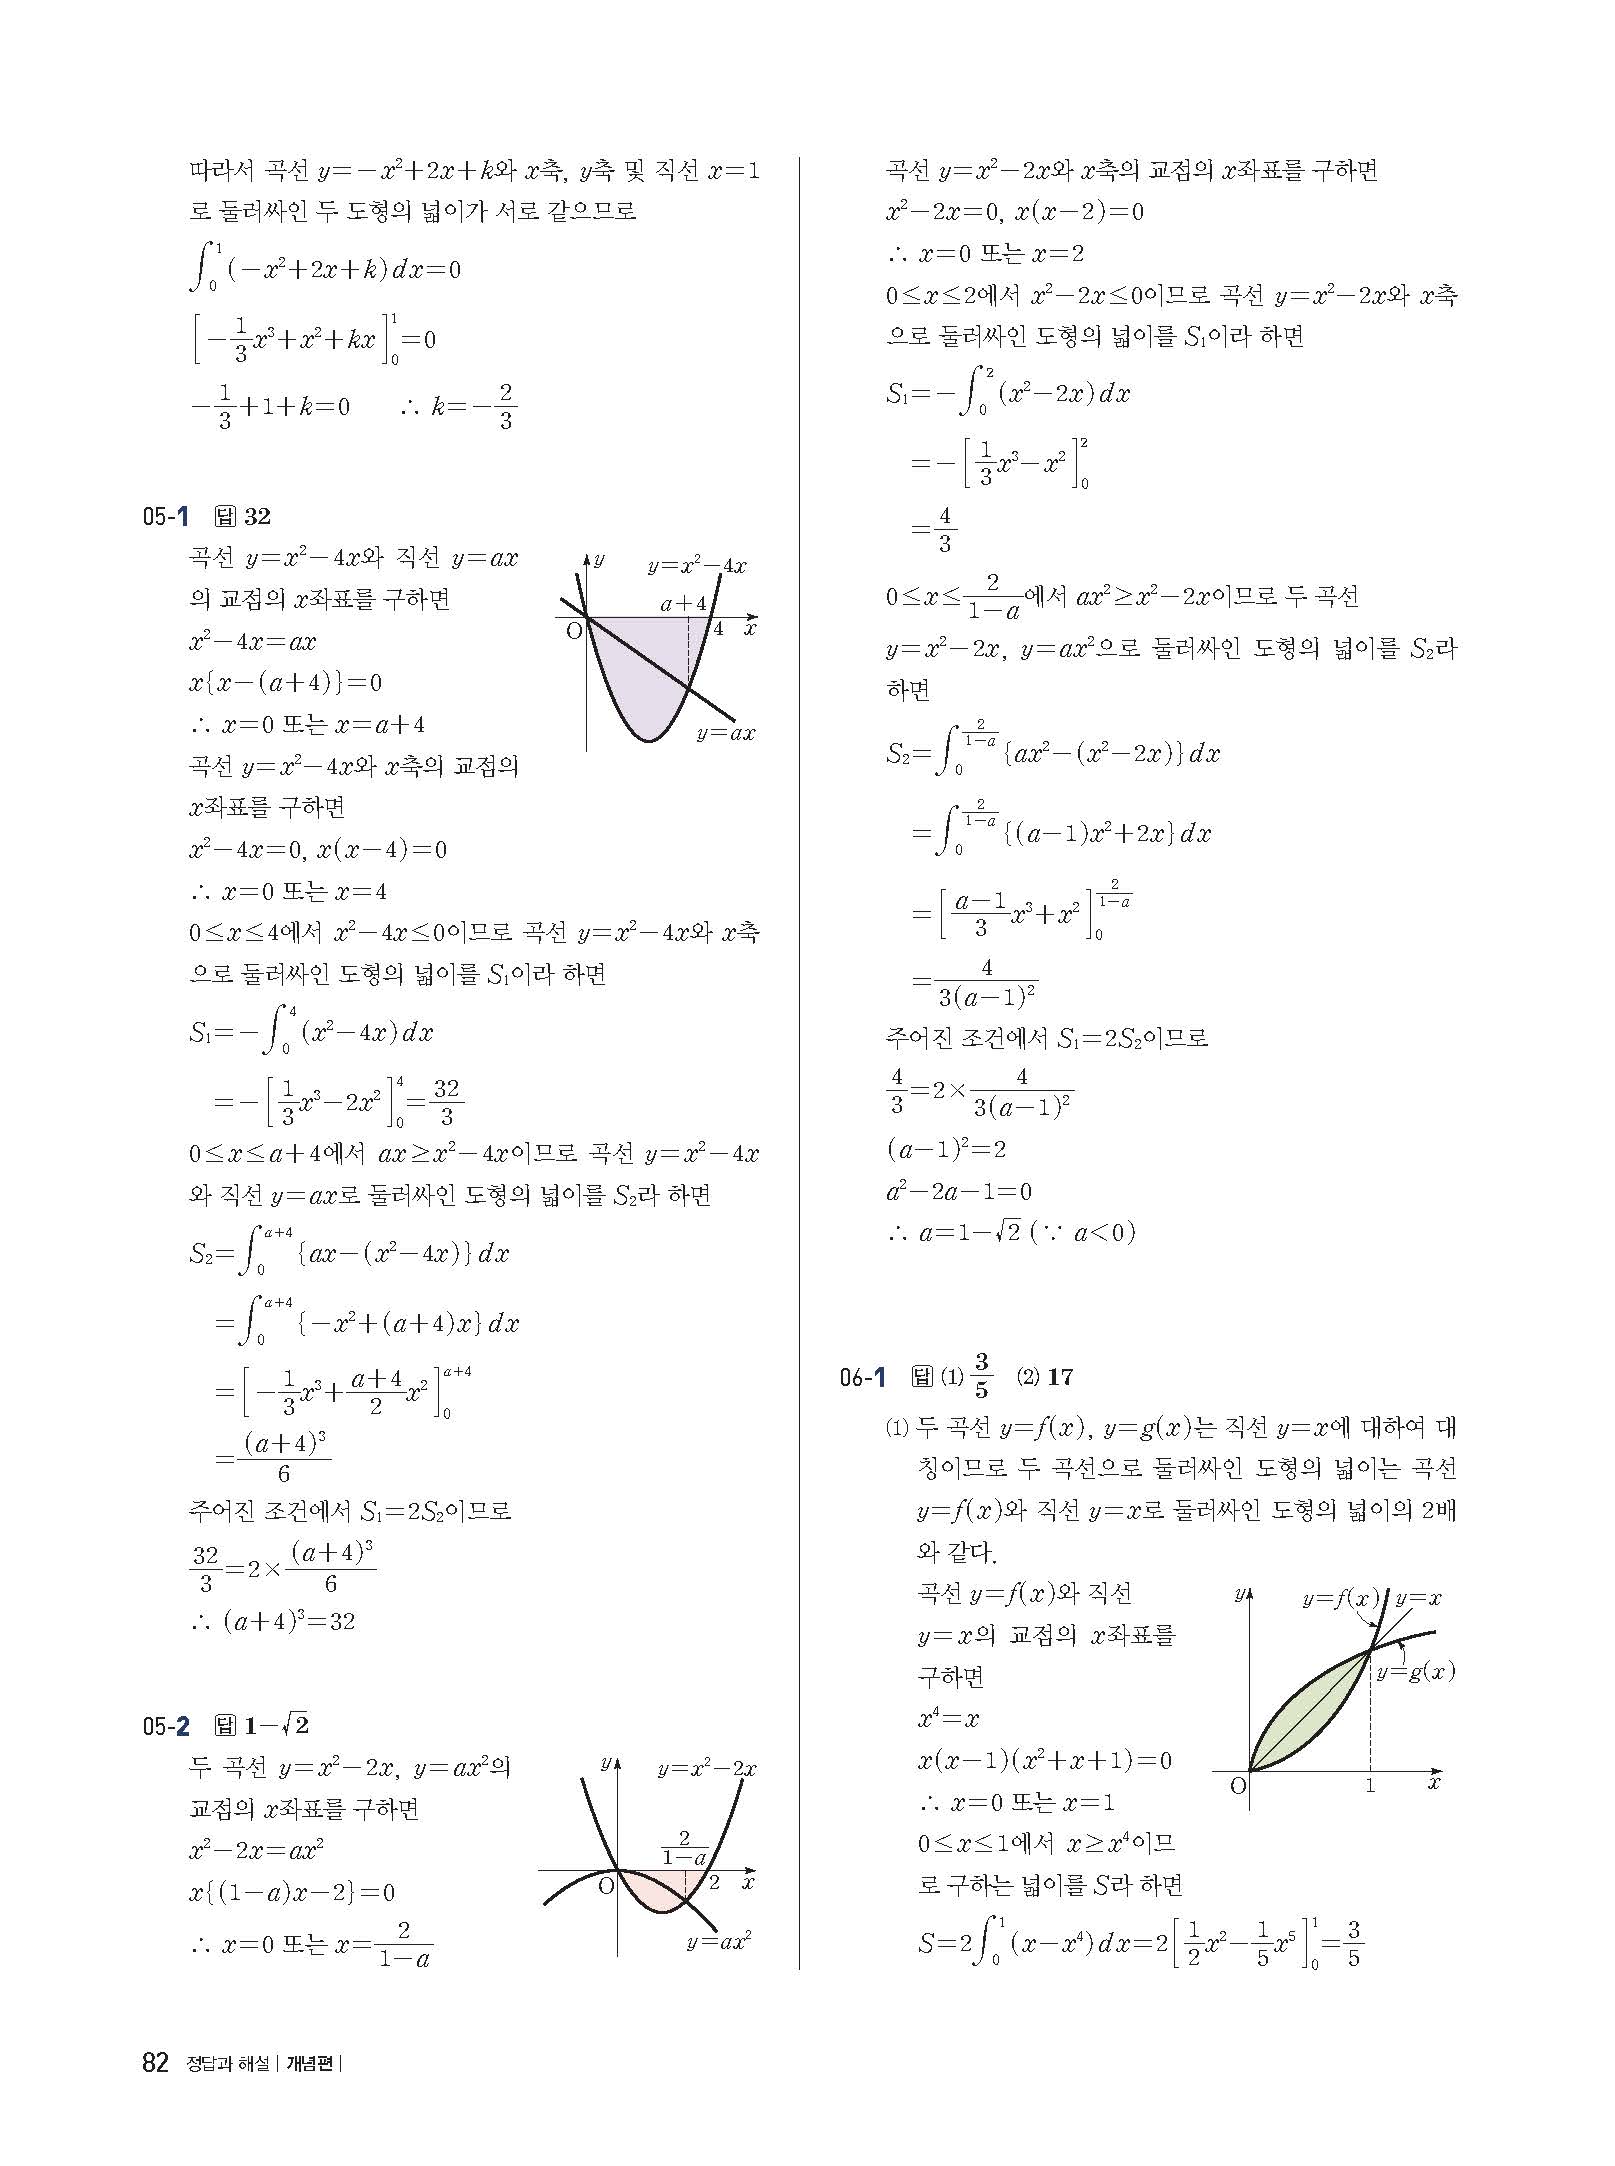 따라서 곡선 y=-x²+2x+k와 x축, y축 및 직선 x=1
로 둘러싸인 두 도형의 넓이가 서로 같으므로
∫₀¹(-x²+2x+k)dx=0
[-1/3x³+x²+kx]₀¹=0
-1/3+1+k=0 ∴ k=-2/3
05-1 답 32
곡선 y=x²-4x와 직선 y=ax
의 교점의 x좌표를 구하면
x²-4x=ax
x{x-(a+4)}=0
∴ x=0 또는 x=a+4
곡선 y=x²-4x와 x축의 교점의
x좌표를 구하면
x²-4x=0, x(x-4)=0
∴ x=0 또는 x=4
y
y=x²-4x
a+4
O
4
x
y=ax
0≤x≤4에서 x²-4x≤0이므로 곡선 y=x²-4x와 x축
으로 둘러싸인 도형의 넓이를 S₁이라 하면
S₁=-∫₀⁴(x²-4x)dx
=-[1/3x³-2x²]₀⁴=32/3
0≤x≤a+4에서 ax≥x²-4x이므로 곡선 y=x²-4x
와 직선 y=ax로 둘러싸인 도형의 넓이를 S₂라 하면
S₂=∫₀^(a+4){ax-(x²-4x)}dx
=∫₀^(a+4){-x²+(a+4)x}dx
=[-1/3x³+(a+4)/2x²]₀^(a+4)
=(a+4)³/6
주어진 조건에서 S₁=2S₂이므로
32/3=2×(a+4)³/6
∴ (a+4)³=32
05-2 답 1-√2
두 곡선 y=x²-2x, y=ax²의
교점의 x좌표를 구하면
x²-2x=ax²
x{(1-a)x-2}=0
∴ x=0 또는 x=2/(1-a)
y
y=x²-2x
2/(1-a)
O
2
x
y=ax²
곡선 y=x²-2x와 x축의 교점의 x좌표를 구하면
x²-2x=0, x(x-2)=0
∴ x=0 또는 x=2
0≤x≤2에서 x²-2x≤0이므로 곡선 y=x²-2x와 x축
으로 둘러싸인 도형의 넓이를 S₁이라 하면
S₁=-∫₀²(x²-2x)dx
=-[1/3x³-x²]₀²
=4/3
0≤x≤2/(1-a)에서 ax²≥x²-2x이므로 두 곡선
y=x²-2x, y=ax²으로 둘러싸인 도형의 넓이를 S₂라
하면
S₂=∫₀^(2/(1-a)){ax²-(x²-2x)}dx
=∫₀^(2/(1-a)){(a-1)x²+2x}dx
=[(a-1)/3x³+x²]₀^(2/(1-a))
=4/(3(a-1)²)
주어진 조건에서 S₁=2S₂이므로
4/3=2×4/(3(a-1)²)
(a-1)²=2
a²-2a-1=0
∴ a=1-√2 (∵ a<0)
06-1 답 (1) 3/5 (2) 17
(1) 두 곡선 y=f(x), y=g(x)는 직선 y=x에 대하여 대
칭이므로 두 곡선으로 둘러싸인 도형의 넓이는 곡선
y=f(x)와 직선 y=x로 둘러싸인 도형의 넓이의 2배
와 같다.
곡선 y=f(x)와 직선
y=x의 교점의 x좌표를
구하면
x⁴=x
x(x-1)(x²+x+1)=0
∴ x=0 또는 x=1
0≤x≤1에서 x≥x⁴이므
로 구하는 넓이를 S라 하면
y
y=f(x)
y=x
y=g(x)
O
1
x
S=2∫₀¹(x-x⁴)dx=2[1/2x²-1/5x⁵]₀¹=3/5
82 정답과 해설 | 개념편 |